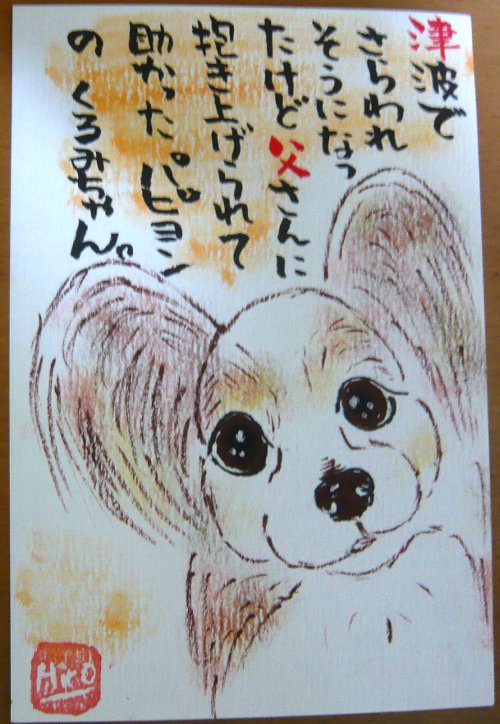 津波で
さらわれ
そうになっ
たけど父さんに
抱き上げられて
助かった パピヨン
の くるみちゃん。
Hiro